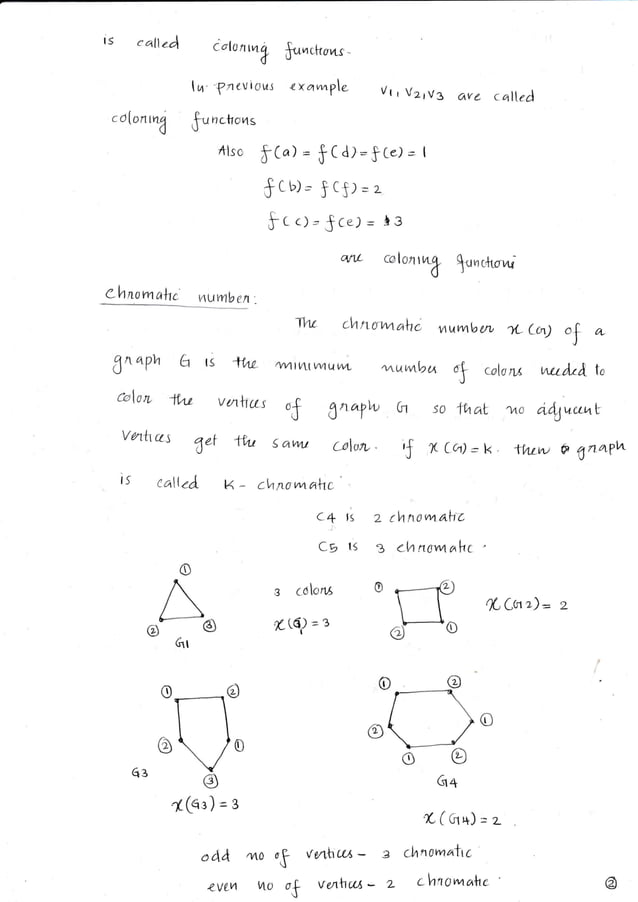 is called coloring functions.
In previous example v1, v2, v3 are called
coloring functions
Also f(a) = f(d) = f(e) = 1
f(b) = f(f) = 2
f(c) = f(e) = 3
are coloring functions
chromatic number:
The chromatic number x(G) of a
graph G is the minimum number of colors needed to
color the vertices of graph G so that no adjucent
vertices get the same color. if x(G) = k. then graph
is called K - chromatic
C4 is 2 chromatic
C5 is 3 chromatic.
①
3 colors
x(G1) = 3
② ③
G1
① ②
② ①
x(G2) = 2
① ②
② ①
③
G3
x(G3) = 3
① ②
② ①
① ②
G4
x(G4) = 2.
odd no of vertices - 3 chromatic
even no of vertices - 2 chromatic.
②